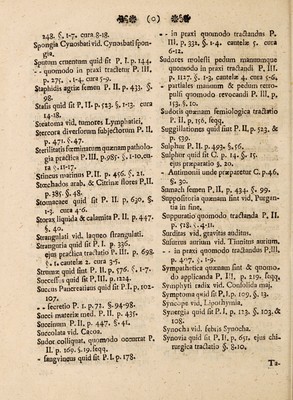 (o)
248. §. 1-7. cura 8-18.
Spongia Cynosbati vid. Cynosbati spon-
gia.
Sputum cruentum quid sit P. I. p. 144.
- - quomodo in praxi tractetur P. III.
p. 275. §. 1-4. cura 5-9.
Staphidis agriæ semen P. II. p. 433. §.
98.
Stasis quid sit P. II. p. 523. §. 1-13. cura
14-18.
Steatoma vid. tumores Lymphatici,
Stercora diversorum subjectorum P. II.
p. 471. §. 47.
Sterilitatis fœminarum quænam patholo-
gia practica P. III. p. 985. §. 1-10. cu-
ra §. 11-17.
Stincus marinus P. II. p. 456. §. 21.
Stœchados arab. & Citrinæ flores P. II.
p. 385. §. 48.
Stomacace quid sit P. II. p. 630. §.
1-3. cura 4-6.
Storax liquida & calamita P. II. p. 447.
§. 40.
Strangulati vid. laqueo strangulati.
Stranguria quid sit P. I. p. 336.
ejus practica tractatio P. III. p. 698.
§. 1. cautelæ 2. cura 3-5.
Strumæ quid sint P. II. p. 576. §. 1-7.
Succellus quid sit P. III. p. 1234.
Succus Pancreatinus quid sit P. I. p. 102-
107.
- - secretio P. I. p. 72. §. 94-98.
Succi materiæ med. P. II. p. 435.
Succinum P. II. p. 447. §. 41.
Succolata vid. Cacoa.
Sudor colliquat. quomodo occurrat P.
II. p. 169. §. 19. seqq.
- sanguineus quid sit P. I. p. 178.
- in praxi quomodo tractandus P.
III. p. 332. §. 1-4. cautelæ 5. cura
6-12.
Sudores molesti pedum manuumque
quomodo in praxi tractandi P. III.
p. 1127. §. 1-3. cautelæ 4. cura 5-6.
- partiales manuum & pedum retro-
pulsi quomodo revocandi P. III. p.
153. §. 10.
Sudoris quænam semiologica tractatio
P. II. p. 156. seqq.
Suggillationes quid sint P. II. p. 523. &
p. 539.
Sulphur P. II. p. 493. §. 56.
Sulphur quid sit C. p. 14. §. 15.
ejus præparatio §. 20.
- Antimonii unde præparetur C. p. 46.
§. 30.
Sumach semen P. II. p. 434. §. 99.
Suppositoria quænam sint vid. Purgan-
tia in fine.
Suppuratio quomodo tractanda P. II.
p. 518. §. 4-11.
Surditas vid. gravitas auditus.
Susurrus aurium vid. Tinnitus aurium.
- - in praxi quomodo tractandus P. III.
p. 407. §. 1-9.
Sympathetica quænam sint & quomo-
do applicanda P. III. p. 129. seqq.
Symphyti radix vid. Consolida maj.
Symptoma quid sit P. I. p. 109. §. 13.
Syncope vid. Lipothymia.
Synergia quid sit P. I. p. 123. §. 103. &
108.
Synocha vid. febris Synocha.
Synovia quid sit P. II. p. 651. ejus chi-
rurgica tractatio §. 8-10.
Ta-